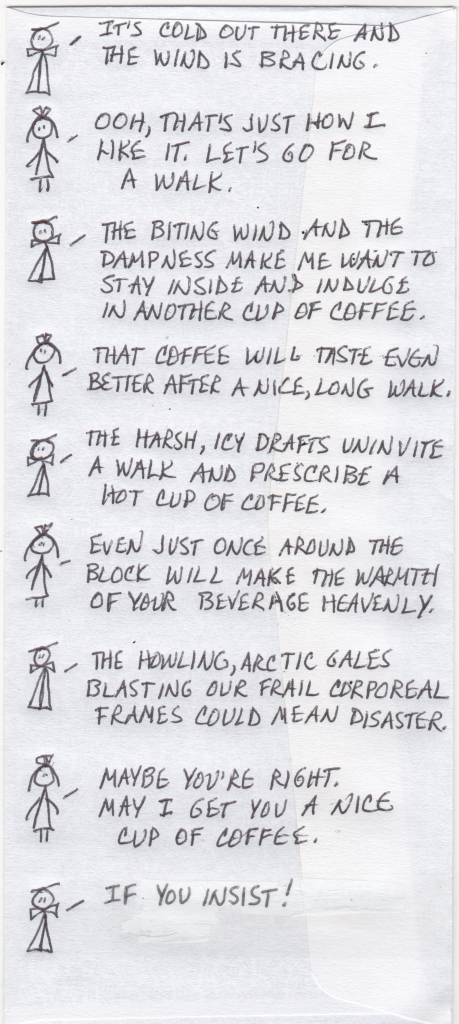 IT'S COLD OUT THERE AND
THE WIND IS BRACING.
OOH, THAT'S JUST HOW I
LIKE IT. LET'S GO FOR
A WALK.
THE BITING WIND AND THE
DAMPNESS MAKE ME WANT TO
STAY INSIDE AND INDULGE
IN ANOTHER CUP OF COFFEE.
THAT COFFEE WILL TASTE EVEN
BETTER AFTER A NICE, LONG WALK.
THE HARSH, ICY DRAFTS UNINVITE
A WALK AND PRESCRIBE A
HOT CUP OF COFFEE.
EVEN JUST ONCE AROUND THE
BLOCK WILL MAKE THE WARMTH
OF YOUR BEVERAGE HEAVENLY.
THE HOWLING, ARCTIC GALES
BLASTING OUR FRAIL CORPOREAL
FRAMES COULD MEAN DISASTER.
MAYBE YOU'RE RIGHT.
MAY I GET YOU A NICE
CUP OF COFFEE.
IF YOU INSIST!